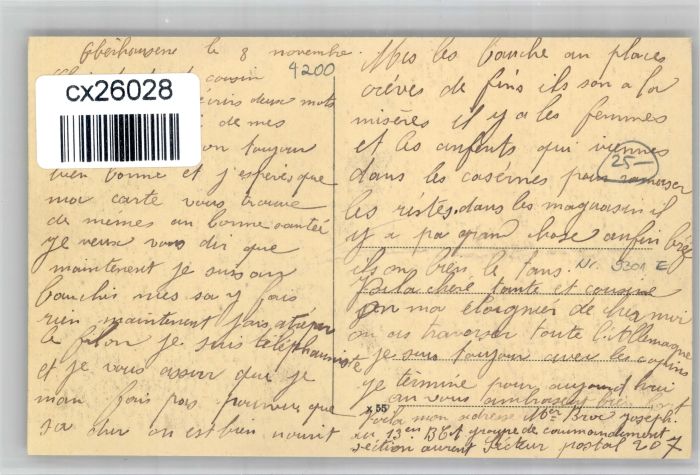 Obërhausene le 8 novembre.
4200
cousin
cx26028
deux mots
de mes
toujour
bien bonne et j'espères que
ma carte vous trouve
de mèmes an bonne santée
je veux vous dir que
maintenent je suis au
bauchis mes sa y fais
rien maintenent jais atréper
le filon je suis téléphauniste
et je vous assur que je
man fais pas pourvus que
sa dur on est bien nourit
Mes les bauche au places
crèves de fins ils son a la
misères il y a les femmes
et les anfents qui viennes
25-
dans les casérnes pour ramaser
les restes. dans les maguasin il
y a pa grand chose anfin bref
ils on bien le tans.
Nr. 9301 E
Voila chère tante et cousine
on ma éloigner de chez moi
on as traverser toute l'Allemagne
je suis toujour avec les copins
je termine pour aujourd hui
an vous ambrasent bien fort
x 55
Voila mon adresse Joseph.
au 13en groupe de coumandement
section Secteur postal 207